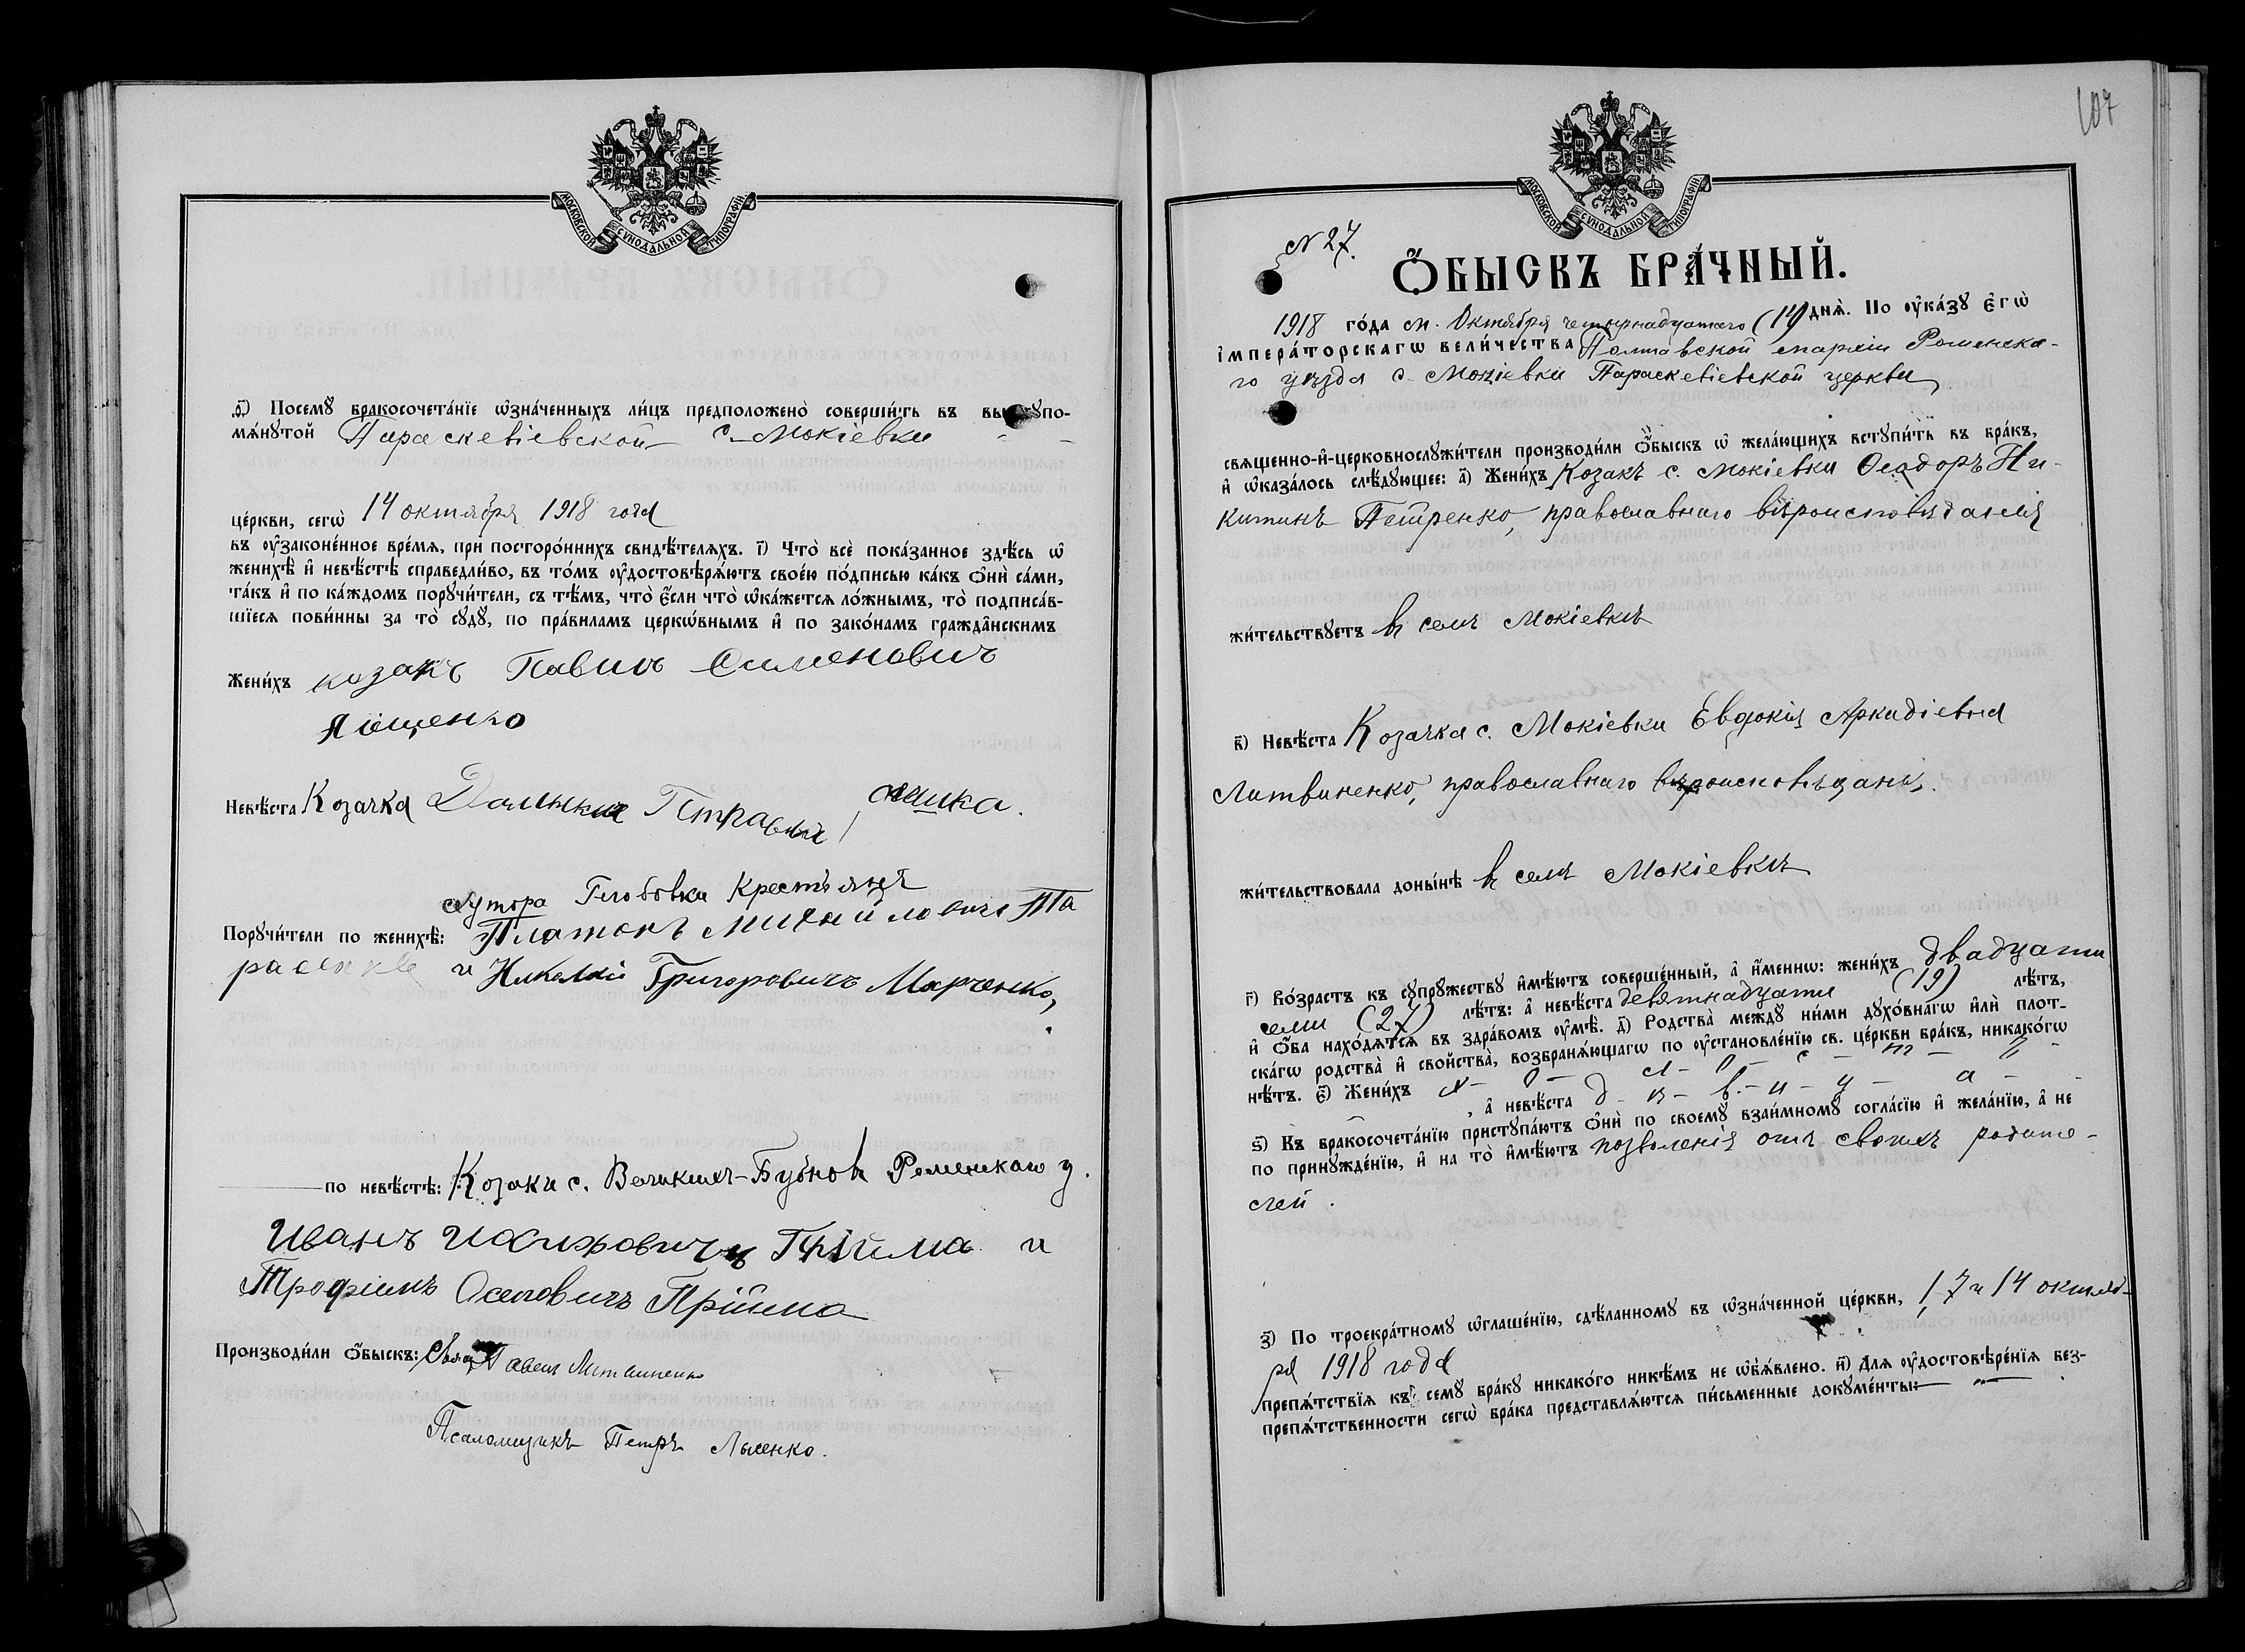 МОСКОВСКОЙ СѴНОДАЛЬНОЙ ТИПОГРАФІИ
ѳ҃) Посемꙋ бракосочета́нїе ѡ҆зна́ченныхъ ли́цъ предположено̀ соверши́ть въ вы ꙋпо-
мѧ́нꙋтой Параскевіевской с. Мокіевки
це́ркви, сегѡ̀ 14 октября 1918 года
въ ᲂу҆законе́нное вре́мѧ, при посторо́ннихъ свидѣ́телѧхъ. і҃) Что̀ всѐ пока́занное здѣ́сь ѡ҆
женихѣ̀ и҆ невѣ́стѣ справедли́во, въ то́мъ ᲂу҆достовѣрѧ́ютъ свое́ю по́дписью ка́къ ѻ҆нѝ са́ми,
та́къ и҆ по ка́ждомъ порꙋчи́тели, съ тѣ́мъ, что̀ є҆́сли что̀ ѡ҆ка́жетсѧ ло́жнымъ, то̀ подписа́в-
шїесѧ пови́нны за то̀ сꙋдꙋ̀, по пра́виламъ церкѡ́внымъ и҆ по зако́намъ гражда̑нскимъ
Жени́хъ козакъ Павилъ Сименович
Яіщенко
Невѣ́ста Козачка Петравна
хутора Глобовки Крестьяне
Порꙋчи́тели по женихѣ̀: Платонъ Михайловичъ Та
расенко и Николай Григоровичъ Марченко,
по невѣ́стѣ: Козаки с. Великихъ-Бубновъ Роменскаго у.
Иванъ Прійма и
Трофимъ Осиповичъ Прійма
Производи́ли ѻ҆́быскъ: Свящ. Павелъ Литвиненко
Псаломщикъ Петръ Лысенко.
107
МОСКОВСКОЙ СѴНОДАЛЬНОЙ ТИПОГРАФІИ
N 27.
Ѻ҆́БЫСКЪ БРА́ЧНЫЙ.
1918 го́да м. Октября четырнадцатого (14) днѧ̀. По ᲂу҆ка́зꙋ є҆гѡ̀
і҆мпера́торскагѡ вели́чества Полтавской епархіи Роменска-
го уѣзда с. Мокіевки Параскевіевской церкви
свѧщенно-и҆-церковнослꙋжи́тели производи́ли ѻ҆́быскъ ѡ҆ жела́ющихъ встꙋпи́ть въ бра́къ,
и҆ ѡ҆каза́лось слѣ́дꙋющее: а҃) Жени́хъ Козакъ с. Мокіевки Ѳеодоръ Ни-
китинъ Петренко, православнаго вѣроисповѣданія
жи́тельствꙋетъ въ селѣ Мокіевкѣ
в҃) Невѣ́ста Козачка с. Мокіевки Евдокія Аркадіевна
Литвиненко, православнаго вѣроисповѣданія.
жи́тельствовала доны́нѣ въ селѣ Мокіевкѣ
г҃) Во́зрастъ къ сꙋпрꙋ́жествꙋ и҆мѣ́ютъ соверше́нный, а҆ и҆́меннѡ: жени́хъ двадцати
семи (27) лѣ́тъ: а҆ невѣ́ста девятнадцати (19) лѣ́тъ,
и҆ ѻ҆́ба нахо́дѧтсѧ въ здра́вомъ ᲂу҆мѣ̀. д҃) Родства̀ междꙋ̀ ни́ми дꙋхо́внагѡ и҆лѝ плот-
ска́гѡ родства̀ и҆ сво́йства, возбранѧ́ющагѡ по ᲂу҆становле́нїю св. це́ркви бра́къ, никако́гѡ
нѣ́тъ. є҃) Жени́хъ х – о – л – о – с – т – ъ
, а҆ невѣ́ста д – ѣ – в – и – ц – а –
ѕ҃) Къ бракосочета́нїю пристꙋпа́ютъ ѻ҆нѝ по своемꙋ̀ взаи́мномꙋ согла́сїю и҆ жела́нїю, а҆ не
по принꙋжде́нїю, и҆ на то̀ и҆мѣ́ютъ позволенія отъ своихъ родите-
лей.
з҃) По троекра́тномꙋ ѡ҆глаше́нїю, сдѣ́ланномꙋ въ ѡ҆зна́ченной це́ркви, 1, 7 и 14 октяб-
ря 1918 года
препѧ́тствїѧ къ семꙋ̀ бра́кꙋ никако́го никѣ́мъ не ѡ҆б̾ѧ́влено. и҃) Длѧ ᲂу҆достовѣре́нїѧ без-
препѧ́тственности сегѡ̀ бра́ка представлѧ́ютсѧ пи́сьменные докꙋме́нты: — " —